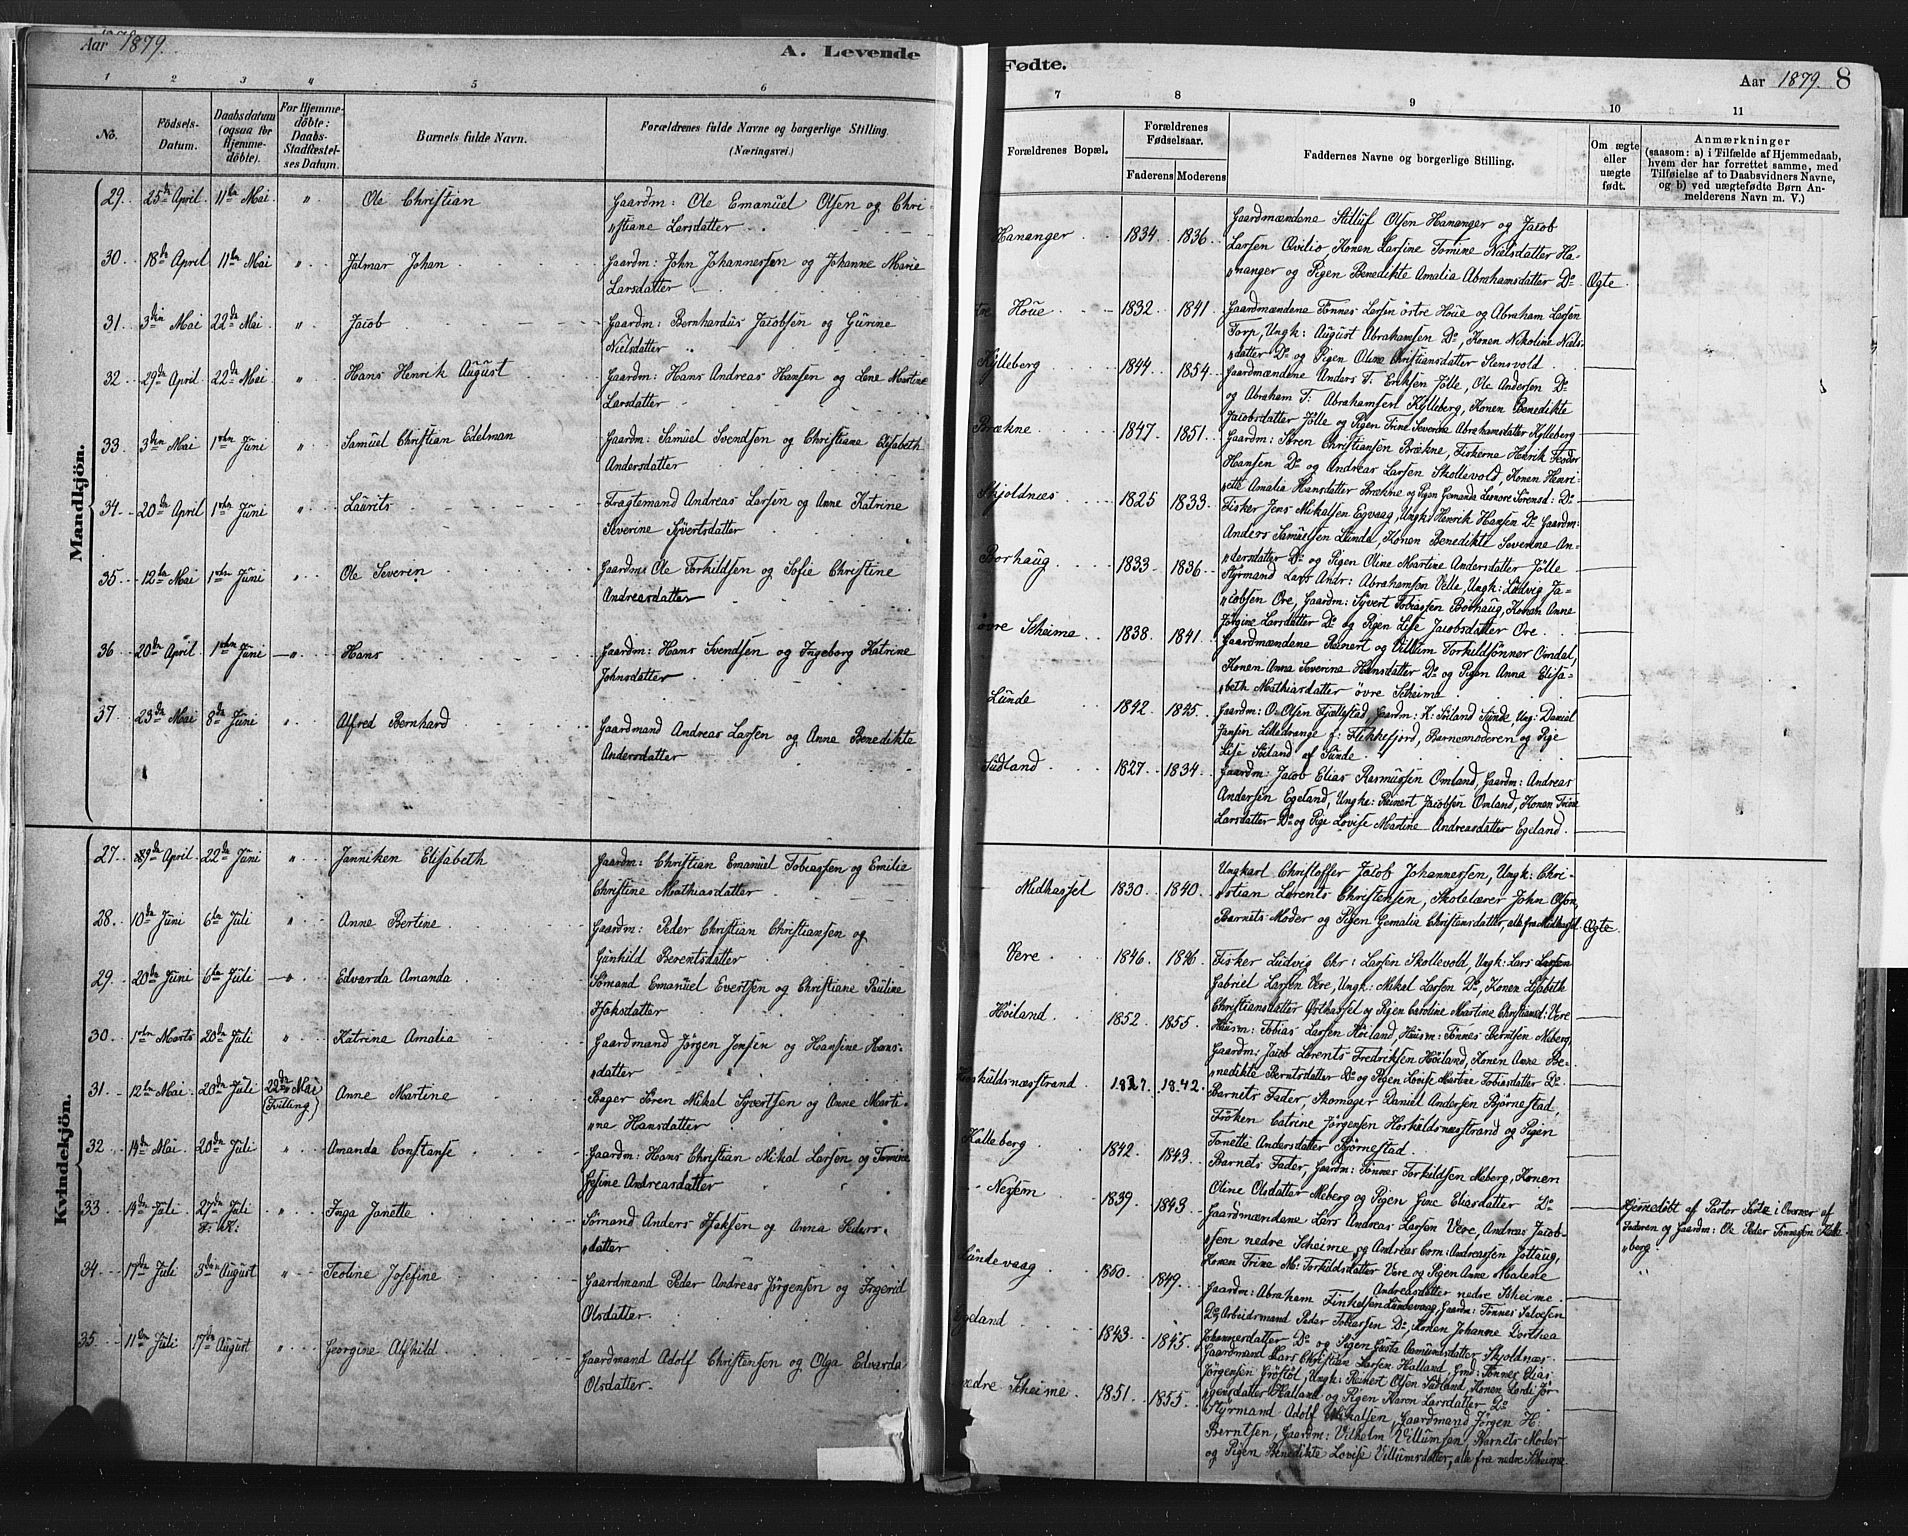 Aar 1879.
A. Levende
1 2 3 4 5 6
No.
Fødsels-Datum.
Daabsdatum (ogsaa for Hjemmedöbte).
For Hjemmedöbte: Daabs-Stadfæstelses Datum.
Barnets fulde Navn.
Forældrenes fulde Navne og borgerlige Stilling.
(Næringsvei.)
Mandkjön.
29. 25de April 11te Mai " Ole Christian Gaardm: Ole Emanuel Olsen og Chri-
"stiane Larsdatter
30 18de April 11te Mai " Jalmar Johan Gaardm: John Johannessen og Johanne Marie
Larsdatter
31 3die Mai 22de Mai " Jacob Gaardm: Bernhardus Jacobsen og Gurine
Nielsdatter
32 29de April 22de Mai " Hans Henrik August Gaardm: Hans Andreas Hansen og Lene Martine
Larsdatter
33 3die Mai 1ste Juni " Samuel Christian Edelman Gaardm: Samuel Svendsen og Christiane Elisabeth
Andersdatter
34 20de April 1ste Juni " Laurits Fragtemand Andreas Larsen og Anne Katrine
Severine Syvertsdatter
35 12te Mai 1ste Juni " Ole Severin Gaardm: Ole Torkildsen og Sofie Christine
Andreasdatter
36 20de April 1ste Juni " Hans Gaardm: Hans Svendsen og Ingeborg Katrine
Johnsdatter
37 23de Mai 8de Juni " Alfred Bernhard Gaardmand Andreas Larsen og Anne Benedikte
Andersdatter
Kvindekjön.
27 29de April 22de Juni " Janniken Elisabeth Gaardm: Christian Emanuel Tobiassen og Emilie
Christine Mathiasdatter
28. 10de Juni 6te Juli " Anne Bertine Gaardm: Peder Christian Christiansen og
Gunhild Berentsdatter
29. 20de Juni 6te Juli " Edvarda Amanda Sömand Emanuel Evertsen og Christiane Pauline
Isaksdatter
30. 1ste Marts 20de Juli " Katrina Amalia Gaardmand Jörgen Jensen og Hansine Hans-
"datter
31. 12te Mai 20de Juli 22de Mai (Tvilling) Anne Martine Bager Sören Mikal Syvertsen og Anne Marti-
"ne Hansdatter
32 14de Mai 20de Juli " Amanda Constanse Gaardm: Hans Christian Mikal Larsen og Tomine
Gesine Andreasdatter
33 14de Juli 27de Juli " Inga Janette Sömand Anders Isaksen og Anna Peders-
"datter
34 17de Juli 3die August " Teoline Josefine Gaardmand Peder Andreas Jörgensen og Ingerid
Olsdatter
35 11te Juli 17de August " Georgine Alfhild Gaardmand Adolf Christensen og Olga Edvarda
Olsdatter
Fødte.
Aar 1879. 8
7 8 9 10 11
Forældrenes Bopæl.
Forældrenes Fødselsaar.
Faderens Moderens
Faddernes Navne og borgerlige Stilling.
Om ægte eller uægte født.
Anmærkninger
(saasom: a) i Tilfælde af Hjemmedaab,
hvem der har forrettet samme, med
Tilføielse af to Daabsvidners Navne,
og b) ved uægtefødte Børn An-
melderens Navn m. V.)
Hananger 1834 1836 Gaardmændene Stilluf Olsen Hananger og Jacob
Larsen Qvilio, Konen Larsine Tomine Nielsdatter Ha-
"nanger og Pigen Benedikte Amalia Abrahamsdatter Do Ægte
Houe 1832 1841 Gaardmændene Tönnes Larsen östre Houe og Abraham Larsen
Torp, Ungk: August Abrahamsen Do, Konen Nikoline Niels-
"datter Do og Pigen Oline Christiansdatter Stensvold
Kylleberg 1844 1854 Gaardmændene Anders T. Eriksen Jölle, Ole Andersen Do
og Abraham T. Abrahamsen Kylleberg, Konen Benedikte
Jacobsdatter Jölle og Pigen Trine Severine Abrahamsdatter Kylleberg
Brækne 1847 1851 Gaardm: Sören Christiansen Brækne, Fiskerne Henrik Teodor
Hansen Do og Andreas Larsen Skollevold, Konen Henri-
"ette Amalia Hansdatter Brækne og Pigen Gemanda Leonore Sörensd: Do
Skjoldnæs 1825 1833 Fisker Jens Mikalsen Egvaag, Ungk: Henrik Hansen Do Gaardm:
Anders Samuelsen Lunde, Konen Benedikte Severine An-
"dersdatter Do og Pigen Oline Martine Andersdatter Jölle
Borhaug 1833 1836 Styrmand Lars Andr: Abrahamsen Velle, Ungk: Ludvig Ja-
"cobsen Ore, Gaardm: Syvert Tobiassen Borhaug, Konen Anne
Jörgine Larsdatter Do og Pigen Lise Jacobsdatter Ore
övre Scheime 1838 1841 Gaardmændene Reinert og Villum Torkildsönner Omdal,
Konen Anna Severina Hansdatter Do og Pigen Anna Elisa-
"beth Mathiasdatter övre Scheime
Lunde 1842 1845 Gaardm: O. Olsen Fjællestad, Gaardm: K: Söiland Sunde, Ung: Daniel
Jansen Lilledrange f: Flekkefjord, Barnemoderen og Pige
Lise Söiland af Sunde
Sudland 1827 1834 Gaardm: Jacob Elias Rasmussen Omland, Gaardm: Andreas
Andersen Egeland, Ungk: Reinert Jacobsen Omland, Konen Trine
Larsdatter Do og Pige Lovise Martine Andreasdatter Egeland
Midhassel 1830 1840 Ungkarl Christoffer Jacob Johannessen, Ungk: Chri-
"stian Lorents Christensen, Skolelærer John Olsen,
Barnets Moder og Pigen Gemalia Christensdatter, alle fra Midhassel Ægte
Vere 1846 1846 Fisker Ludvig Chr: Larsen Skollevold, Ungk: Lars Larsen
Gabriel Larsen Vere, Ungk: Mikal Larsen Do, Konen Lisabeth
Christiansdatter Östhassel og Pigen Caroline Martine Christiansd: Vere
Höiland 1852 1855 Huusm: Tobias Larsen Höiland, Huusm: Tönnes Berntsen Meberg,
Gaardm: Jacob Lorents Fredriksen Höiland, Konen Anna Be-
"nedikte Berntsdatter Do og Pigen Lovise Martine Tobiasdatter Do
Hoskuldsnæsstrand 1827 1842 Barnets Fader, Skomager Daniel Andersen Björnestad,
Fröken Catrine Jörgensen Hoskuldsnæsstrand og Pigen
Tonette Andersdatter Björnestad
Kalleberg 1842 1843 Barnets Fader, Gaardm: Tönnes Torkildsen Meberg, Konen
Oline Olsdatter Meberg og Pigen Gine Eliasdatter Do
Nesem 1839 1843 Gaardmændene Lars Andreas Larsen Vere, Andreas Jacob-
"sen nedre Scheime og Andreas Corn: Andreassen Jottaug,
Konen Trine M: Torkildsdatter Vere og Pigen Anne Malene
Andreasdatter nedre Scheime
Hjemmedöbt af Pastor i Overvær af
Faderen og Gaardm: Ole Peder Tönnessen Kalle-
"berg
Lundevaag 1840 1849 Gaardm: Abraham Finkelsen Lundevaag, Gaardm: Tönnes Salvesen
Do, Arbeidsmand Peder Tobiassen Do, Konen Johanne Dorthea
Johannesdatter Do og Pigen Gusta Aamundsdatter Skjoldnæs
Egeland 1843 1845 Gaardmand Lars Christian Larsen Halland, Grmd: Tönnes Elias
Jörgensen Gröstöl, Ungk: Reinert Olsen Sudland, Konen Lorde Jör-
"gensdatter Halland og Pigen Karen Larsdatter Do
nedre Scheime 1851 1855 Styrmand Adolf Mikalsen, Gaardmand Jörgen H:
Berntsen, Gaardm: Vilhelm Villumsen, Barnets Moder
og Pigen Benedikte Lovise Villumsdatter, alle fra nedre Scheime